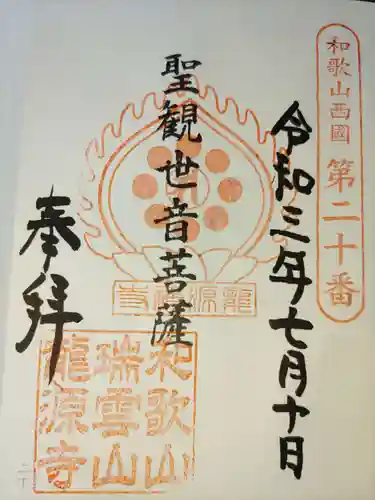 和歌山西國 第二十番
令和三年七月十日
聖観世音菩薩
龍源禅寺
奉拝
和歌山
瑞雲山
龍源寺